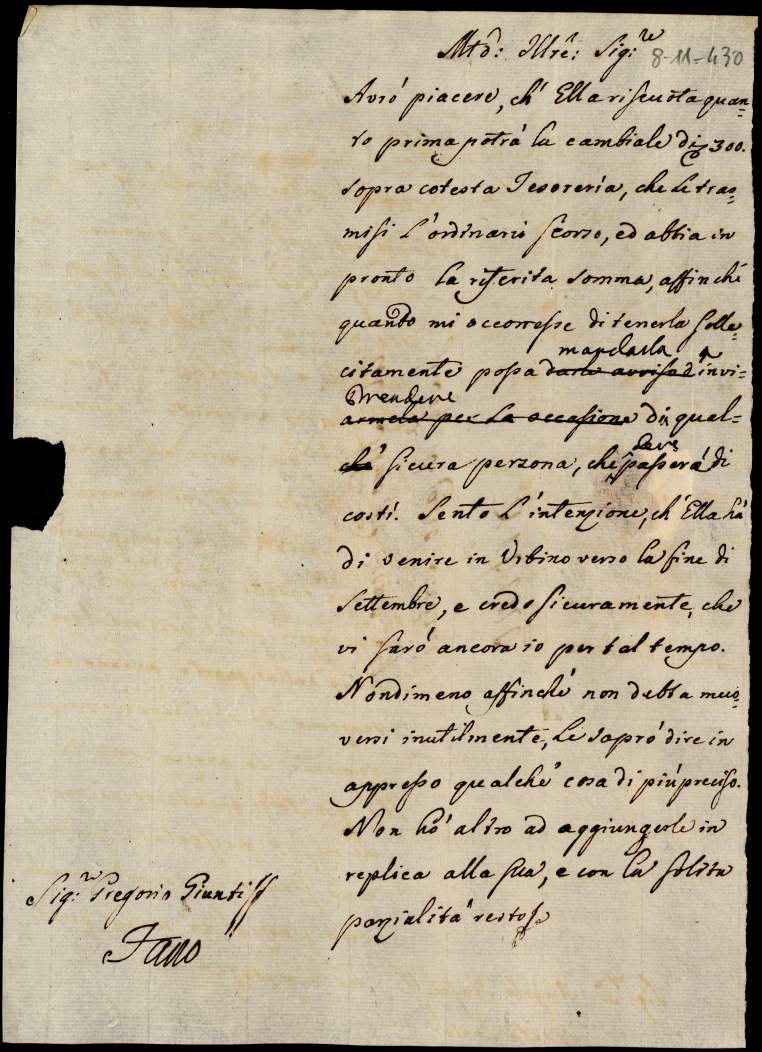 Mtõ: Illrẽ: Sig:re
8-11-430
Avró piacere, ch' Ella riscuota quan=
to prima potrá la cambiale di 300.
sopra cotesta Tesoreria, che Le tras=
misi l'ordinario scorso, ed abbia in
pronto la riferita somma, affinché
quando mi occorresse di tenerla solle=
mandarla
citamente possa darle avviso d'invi=
Prendere
armela per la occasione di qual=
che sicura perzona, che deve passerá di
costí. Sento l'intenzione, ch' Ella há
di venire in Urbino verso la fine di
Settembre, e credo sicuramente, che
vi saró ancora io per tal tempo.
Nondimeno affinché non debba muo=
versi inutilmente, Le sapró dire in
appresso qualche cosa di piú preciso.
Non hó altro ad aggiungerle in
replica alla sua, e con la solita
parzialitá resto
Sig:re Gregorio Giunti
Fano